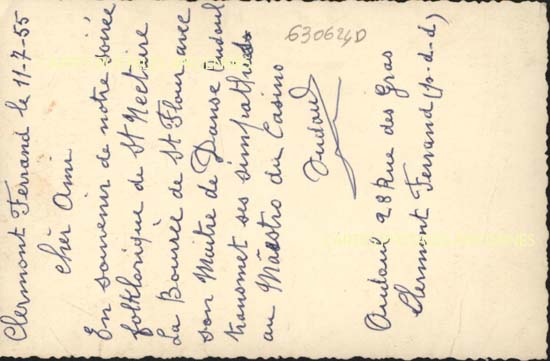 Clermont Ferrand le 11-7-55
cher Ami
En souvenir de notre soirée
folklorique de St Nectaire
La Bourrée de St Flour avec
son Maitre de Danse Oudoul
transmet ses simpathies
au Mâestro du Casino
Oudoul
Oudoul 28 Rue des Gras
Clermont Ferrand (p-d-d)
630624D